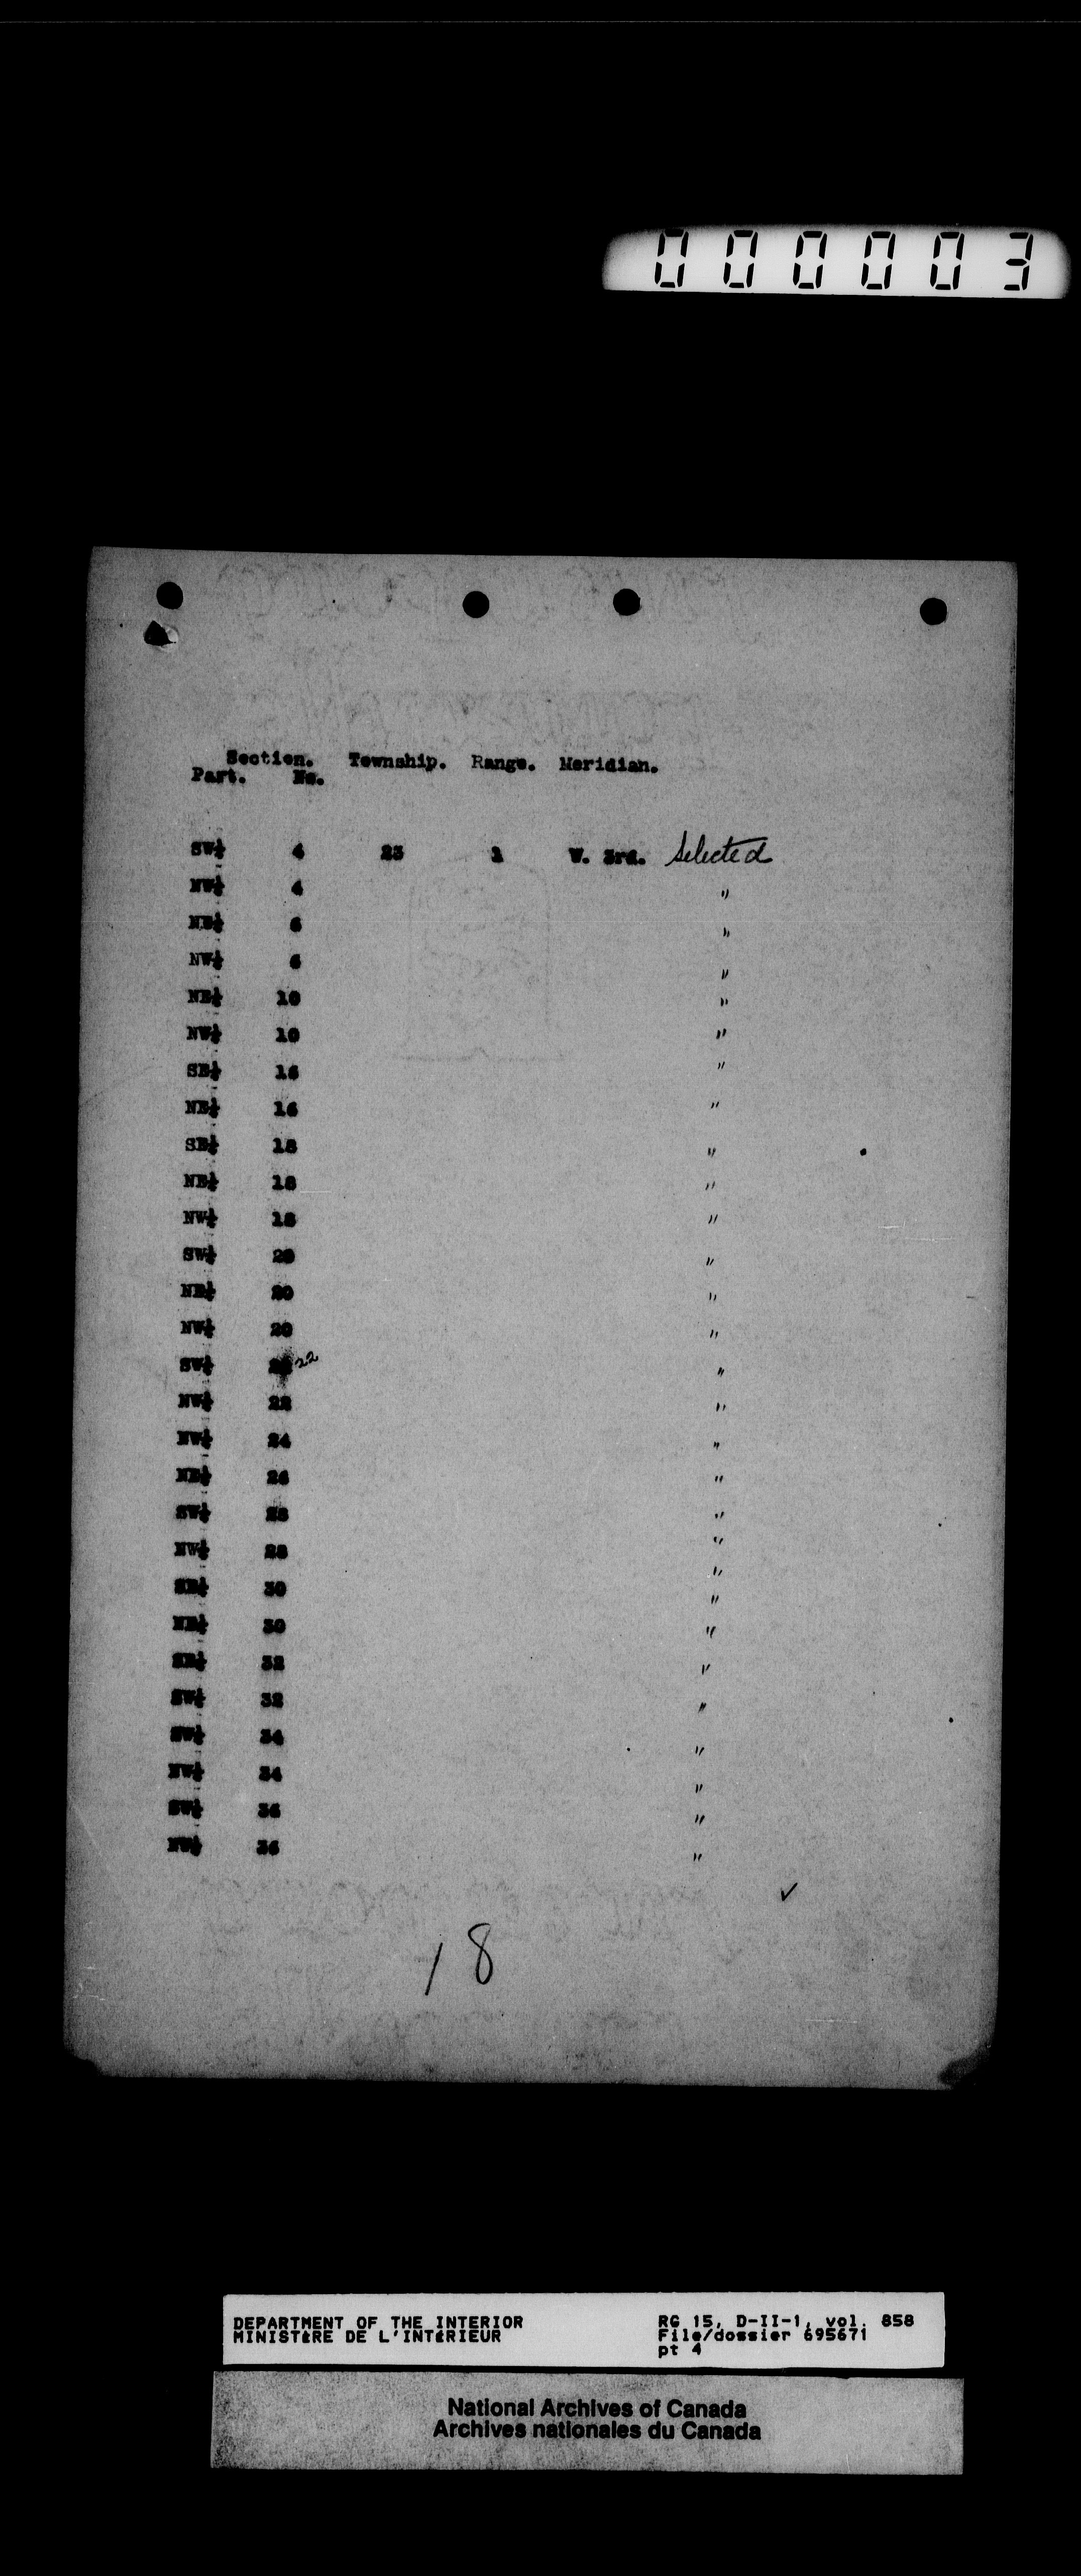 000003
Section. Township. Range. Meridian.
Part. No.
SW¼ 4 23 1 W. 3rd. Selected
NW¼ 4 "
NE¼ 6 "
NW¼ 6 "
NE¼ 10 "
NW¼ 10 "
SE¼ 16 "
NE¼ 16 "
SE¼ 18 "
NE¼ 18 "
NW¼ 18 "
SW¼ 20 "
NE¼ 20 "
NW¼ 20 "
SW¼ 22 "
NW¼ 22 "
NW¼ 24 "
NE¼ 26 "
SW¼ 28 "
NW¼ 28 "
SE¼ 30 "
NE¼ 30 "
32 "
SW¼ 32 "
SW¼ 34 "
NW¼ 34 "
SW¼ 36 "
NW¼ 36 "
18
DEPARTMENT OF THE INTERIOR RG 15, D-II-1, vol. 858
MINISTÈRE DE L'INTÉRIEUR File/dossier 695671
pt 4
National Archives of Canada
Archives nationales du Canada